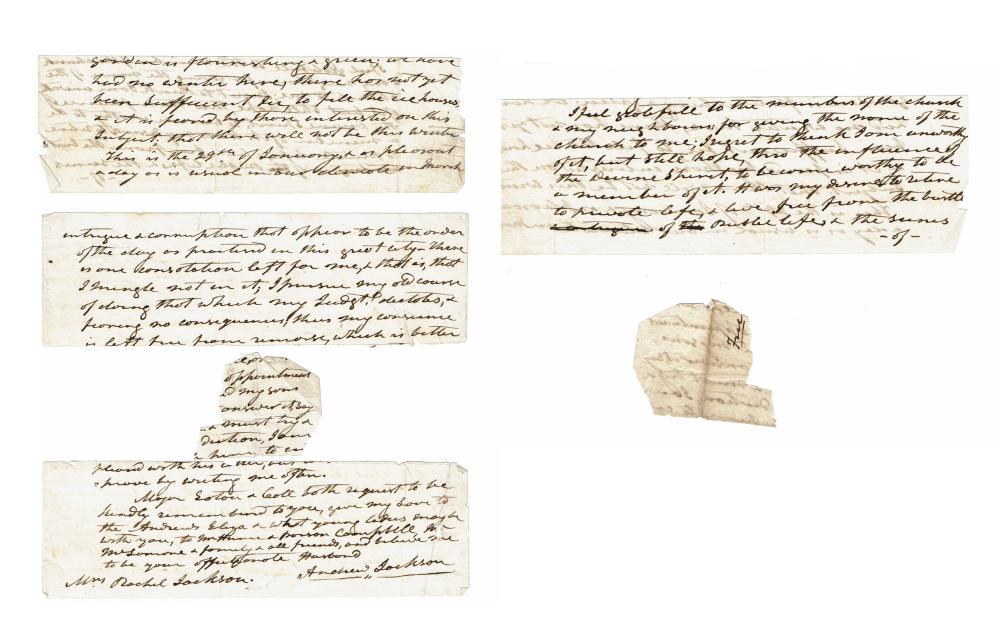 garden is flourishing & green; we have
had no winter here, there has not yet
been sufficient Ice, to fill the icehouses,
& it is feared by those interested on this
subject, that there will not be this winter
This is the 29th of January, & as pleasant
a day as is usual in our climate in March
intrigue & corruption that appear to be the order
of the day as practised in this great city. There
is one consolation left for me, & that is, that
I mingle not in it, I pursue my old course
of doing that which my Judgt. dictates, &
fearing no consequences, thus my conscience
is left free from remorse, which is better
appointment
my sons
answer it, say
& must try &
I am
to
with his
prove by writing me often.
Major Eaton & Call both request to be
kindly remembered to you, give my love to
the Andrews Eliza & what young ladies may be
with you, to Mr Hume & Parson Campbell, Mr &
Mrs Somone & family & all friends, and believe me
to be your affectionate Husband
Andrew Jackson
Mrs Rachel Jackson.
I feel gratefull to the members of the church
& my neighbours, for giving the name of the
church to me; I regret to think I am unworthy
of it, but still hope, thro the influence of
the Devine Spirit, to become worthy to be
a member of it. It was my desire to retire
to private life, & live free from the bustle
of Public life & the
- of -
Free